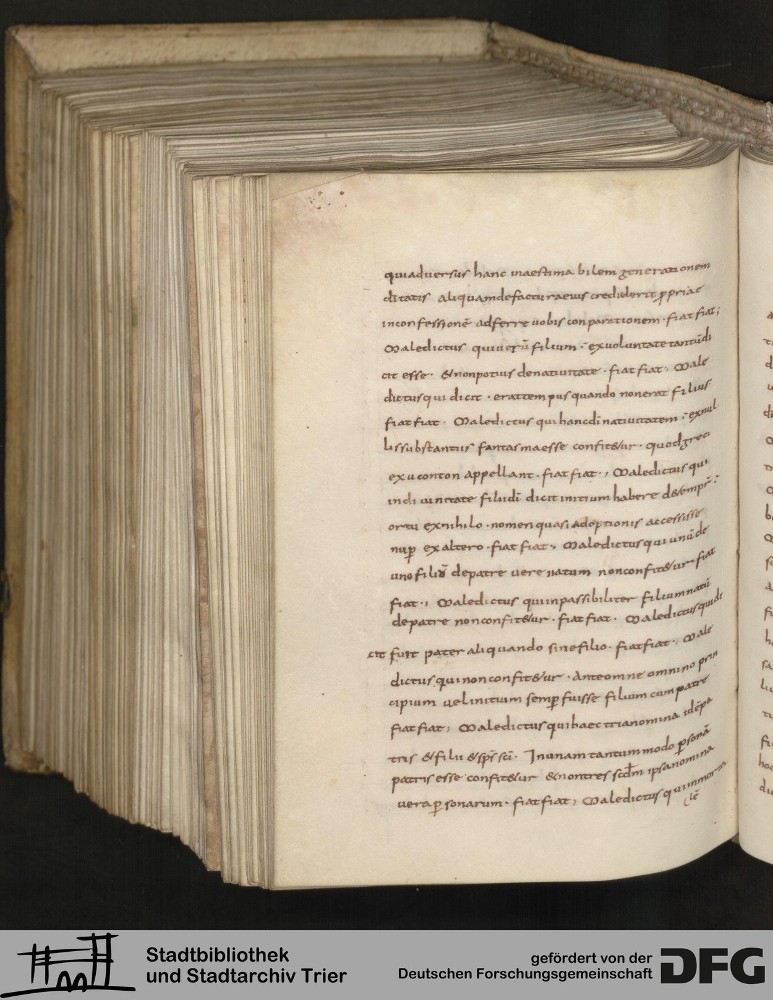 quiadversus hanc inaestima bilem generationem
ditatis aliquamdefacturaeius crediderit ꝓpriae
inconfessionē adferre uobis conparationem · fiat fiat;
Maledictus quiuerū filium · exuoluntatetantūdi
cit esse · &nonpotius denatiuitate · fiat fiat · Male
dictusqui dicit · erattempusquando nonerat filius
fiat fiat · Maledictus quihancdi natiuitatem · exnul
lissubstantiis fantasmaesse confit&ur · quodgreci
exuconton appellant · fiat fiat ·; Maledictus qui
indi uinitate filiidī dicit initium habere
ortu exnihilo · nomen quasi adoptionis accessisse
nuꝑ exaltero · fiat fiat · Maledictus qui unū de
uno filiū depatre uere natum nonconfit&ur · fiat
fiat ·; Maledictus quiinpassibiliter filiumnatū
depatre nonconfit&ur · fiat fiat · Maledictusquidi
cit fuit pater aliquando sinefilio · fiatfiat ·; Male
dictus quinonconfit&ur · Anteomne omnino prin
cipium uelinitium semꝑ fuisse filium cumpatre
fiatfiat; Maledictus quihaectrianomina idē pa
tris &filii &sp̄s sc̄i · Inunam tantummodo ꝑsonā
patris esse confit&ur &nontres scd̄m ipsanomina
uera ꝑsonarum · fiat fiat; Maledictus qui
Stadtbibliothek
und Stadtarchiv Trier
gefördert von der
Deutschen Forschungsgemeinschaft
DFG